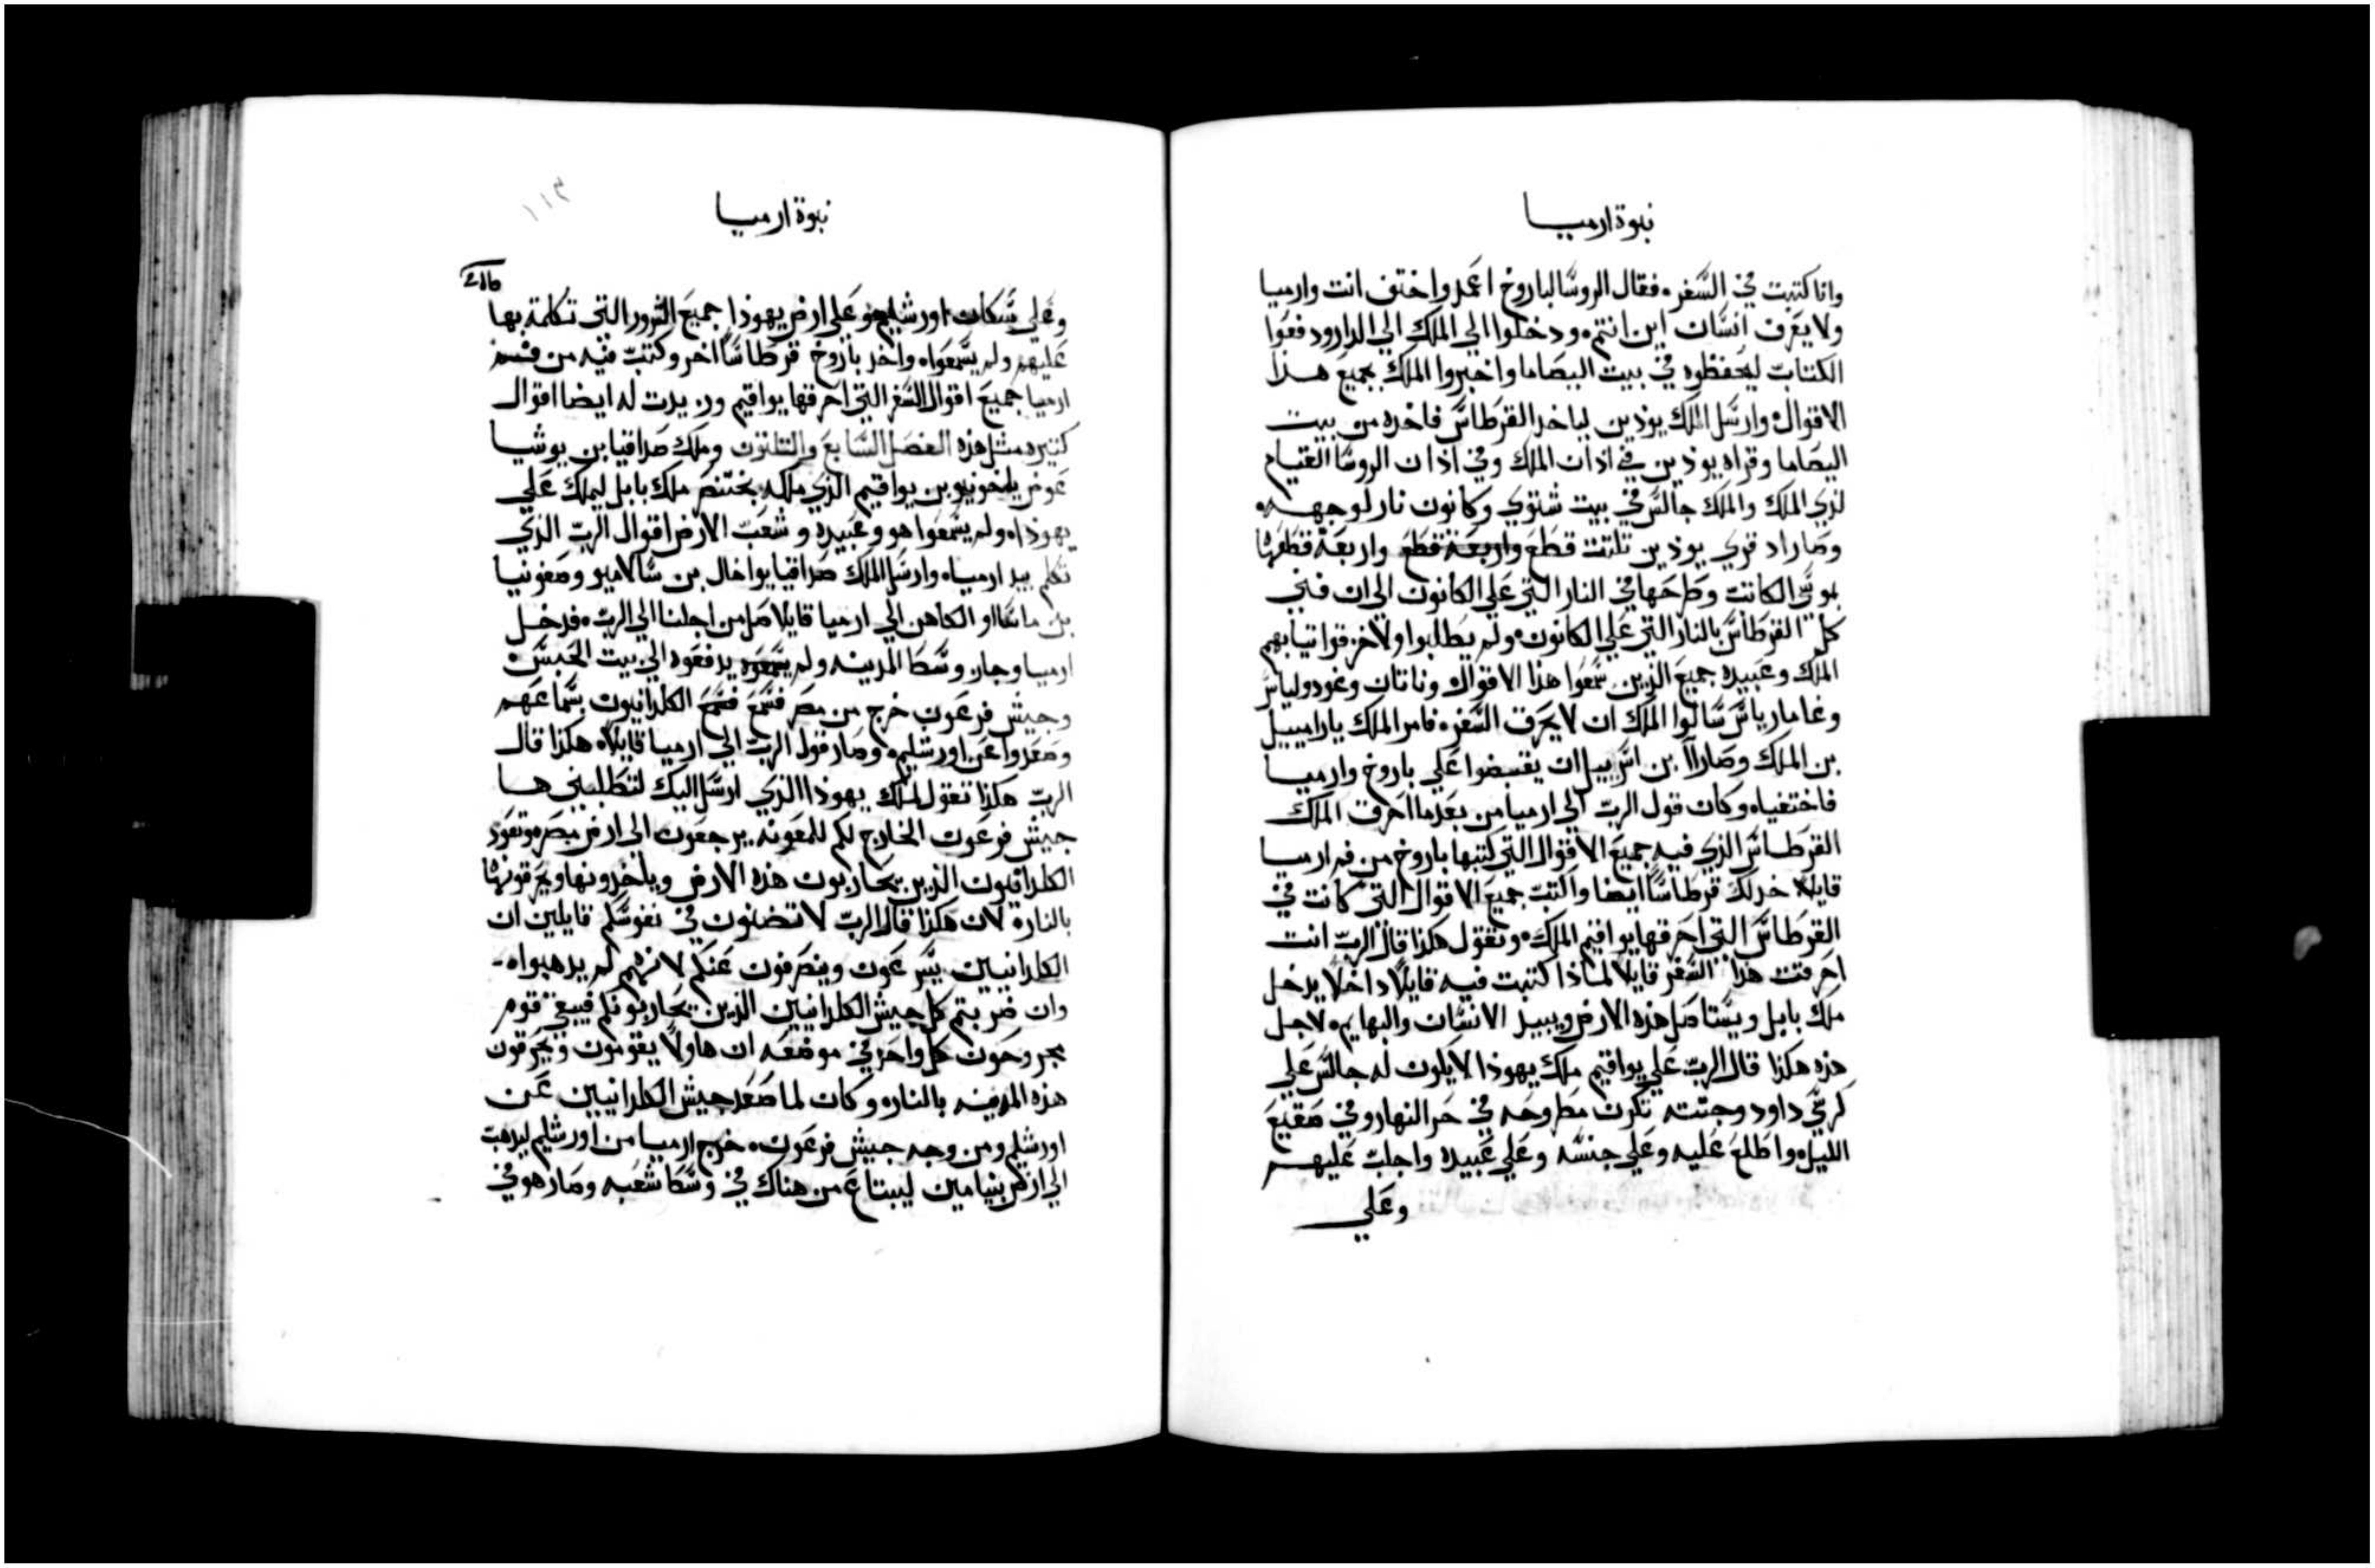 نبوة ارميا
وانا كتبت في السفر، فقال الروسا لباروخ اعمد واختف انت وارميا
ولا يعرف انسان اين انتم، ودخلوا الي الملك الي الدار ودفعوا
الكتاب ليحفظوه في بيت اليصاما واخبروا الملك بجميع هذا
الاقوال، وارسل الملك يوذين لياخد القرطاس فاخده من بيت
اليصاما وقراه يوذين في اذان الملك وفي اذان الروسا القيام
لدي الملك والملك جالس في بيت شتوي وكانون نار لوجهه،
وصار اد قري يوذين تلتت قطع واربعة قطع واربعة قطعها
بموسي الكاتت وطرحها في النار التي علي الكانون الي ان فني
كل القرطاس بالنار التي علي الكانون، ولم يطلبوا ولا خزقوا تيابهم
الملك وعبيده جميع الذين سمعوا هذا الاقوال، وناتان وغودولياس
وغاماریاس سالوا الملك ان لا يحرق السفر، فامر الملك يارامييل
بن الملك وصارآا بن اسرييل ان يقبضوا علي باروخ وارميا
فاختفيا، وكان قول الرب الي ارميا من بعدما احرق الملك
القرطاس الذي فيه جميع الاقوال التي كتبها باروخ من فم ارميا
قايلا، خد لك قرطاسا ايضا واكتب جميع الاقوال التي كانت في
القرطاس التي احرقها يواقيم الملك، وتقول هكذا قال الرب انت
احرقت هذا السفر قايلا لماذا كتبت فيه قايلا داخلا يدخل
ملك بابل ويستاصل هذه الارض ويبيد الانسان والبهايم، لاجل
هذه هكذا قال الرب علي يواقيم ملك يهوذا لا يكون له جالس علي
كرسي داود وجتته تكون مطروحه في حر النهار وفي صقيع
الليل، واطلع عليه وعلي جنسه وعلي عبيده واجلب عليهم
وعلي
نبوة ارميا
١١٣
وعلي سكان اورشليم وعلي ارض يهوذا جميع الشرور التي تكلمة بها
عليهم ولم يسمعوا، واخد باروخ قرطاسا اخر وكتب فيه من فم
ارميا جميع اقوال السفر التي احرقها يواقيم وزيدت له ايضا اقوال
كتيره مثل هذه الفصل السابع والتلتون وملك صداقيا بن يوشيا
عوض يخونيو بن يواقيم الذي ملكه بختنصر ملك بابل ليملك علي
يهوذا، ولم يسمعوا هو وعبيده وشعب الارض اقوال الرب الذي
تكلم بيد ارميا، وارسل الملك صداقيا يواخال بن سالاميو وصفونيا
بن ماسااو الكاهن الي ارميا قايلا صل من اجلنا الي الرب، فدخل
ارميا وجاز وسط المدينه ولم يدفعوه الي بيت الحبس،
وجيش فرعون خرج من مصر فسمع فسمع الكلدانيون بسماعهم
وصعدوا عن اورشليم، وصار قول الرب الي ارميا قايلا، هكذا قال
الرب هكذا تقول لملك يهوذا الذي ارسل اليك لتطلبني ها
جيش فرعون الخارج لكم للمعونه يرجعون الي ارض مصر، وتعود
الكلدانيون الذين يحاربون هذه الارض وياخدونها ويحرقونها
بالنار، لان هكذا قال الرب لا تضنون في نفوسكم قايلين ان
الكلدانيين يسرعون وينصرفون عنكم لانهم لم يدهبوا،
وان ضربتم كل جيش الكلدانيين الذين يحاربونكم فيبقي قوم
مجروحون كل واحد في موضعه ان هاولا يقومون ويحرقون
هذه المدينه بالنار، وكان لما صعد جيش الكلدانيين عن
اورشليم ومن وجه جيش فرعون، خرج ارميا من اورشليم ليدهب
الي ارض بنيامين ليبتاع من هناك في وسط شعبه وصار هو في